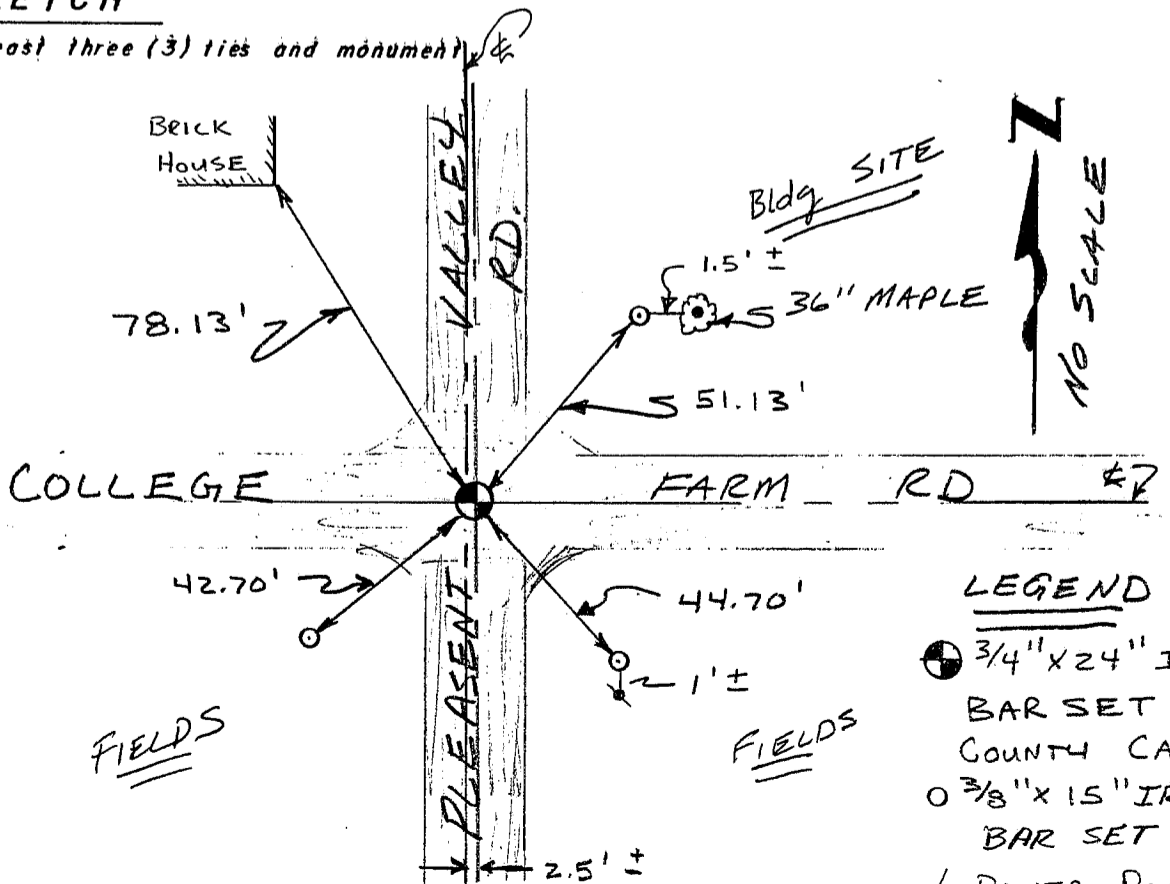 three (3) ties and monument
℄
BRICK
HOUSE
VALLEY
RD.
Bldg SITE
N
NO SCALE
1.5' ±
36" MAPLE
78.13'
51.13'
COLLEGE FARM RD ℄
42.70'
44.70'
1' ±
PLEASENT
FIELDS
FIELDS
2.5' ±
LEGEND
3/4" X 24"
BAR SET
COUNTY
3/8" X 15"
BAR SET